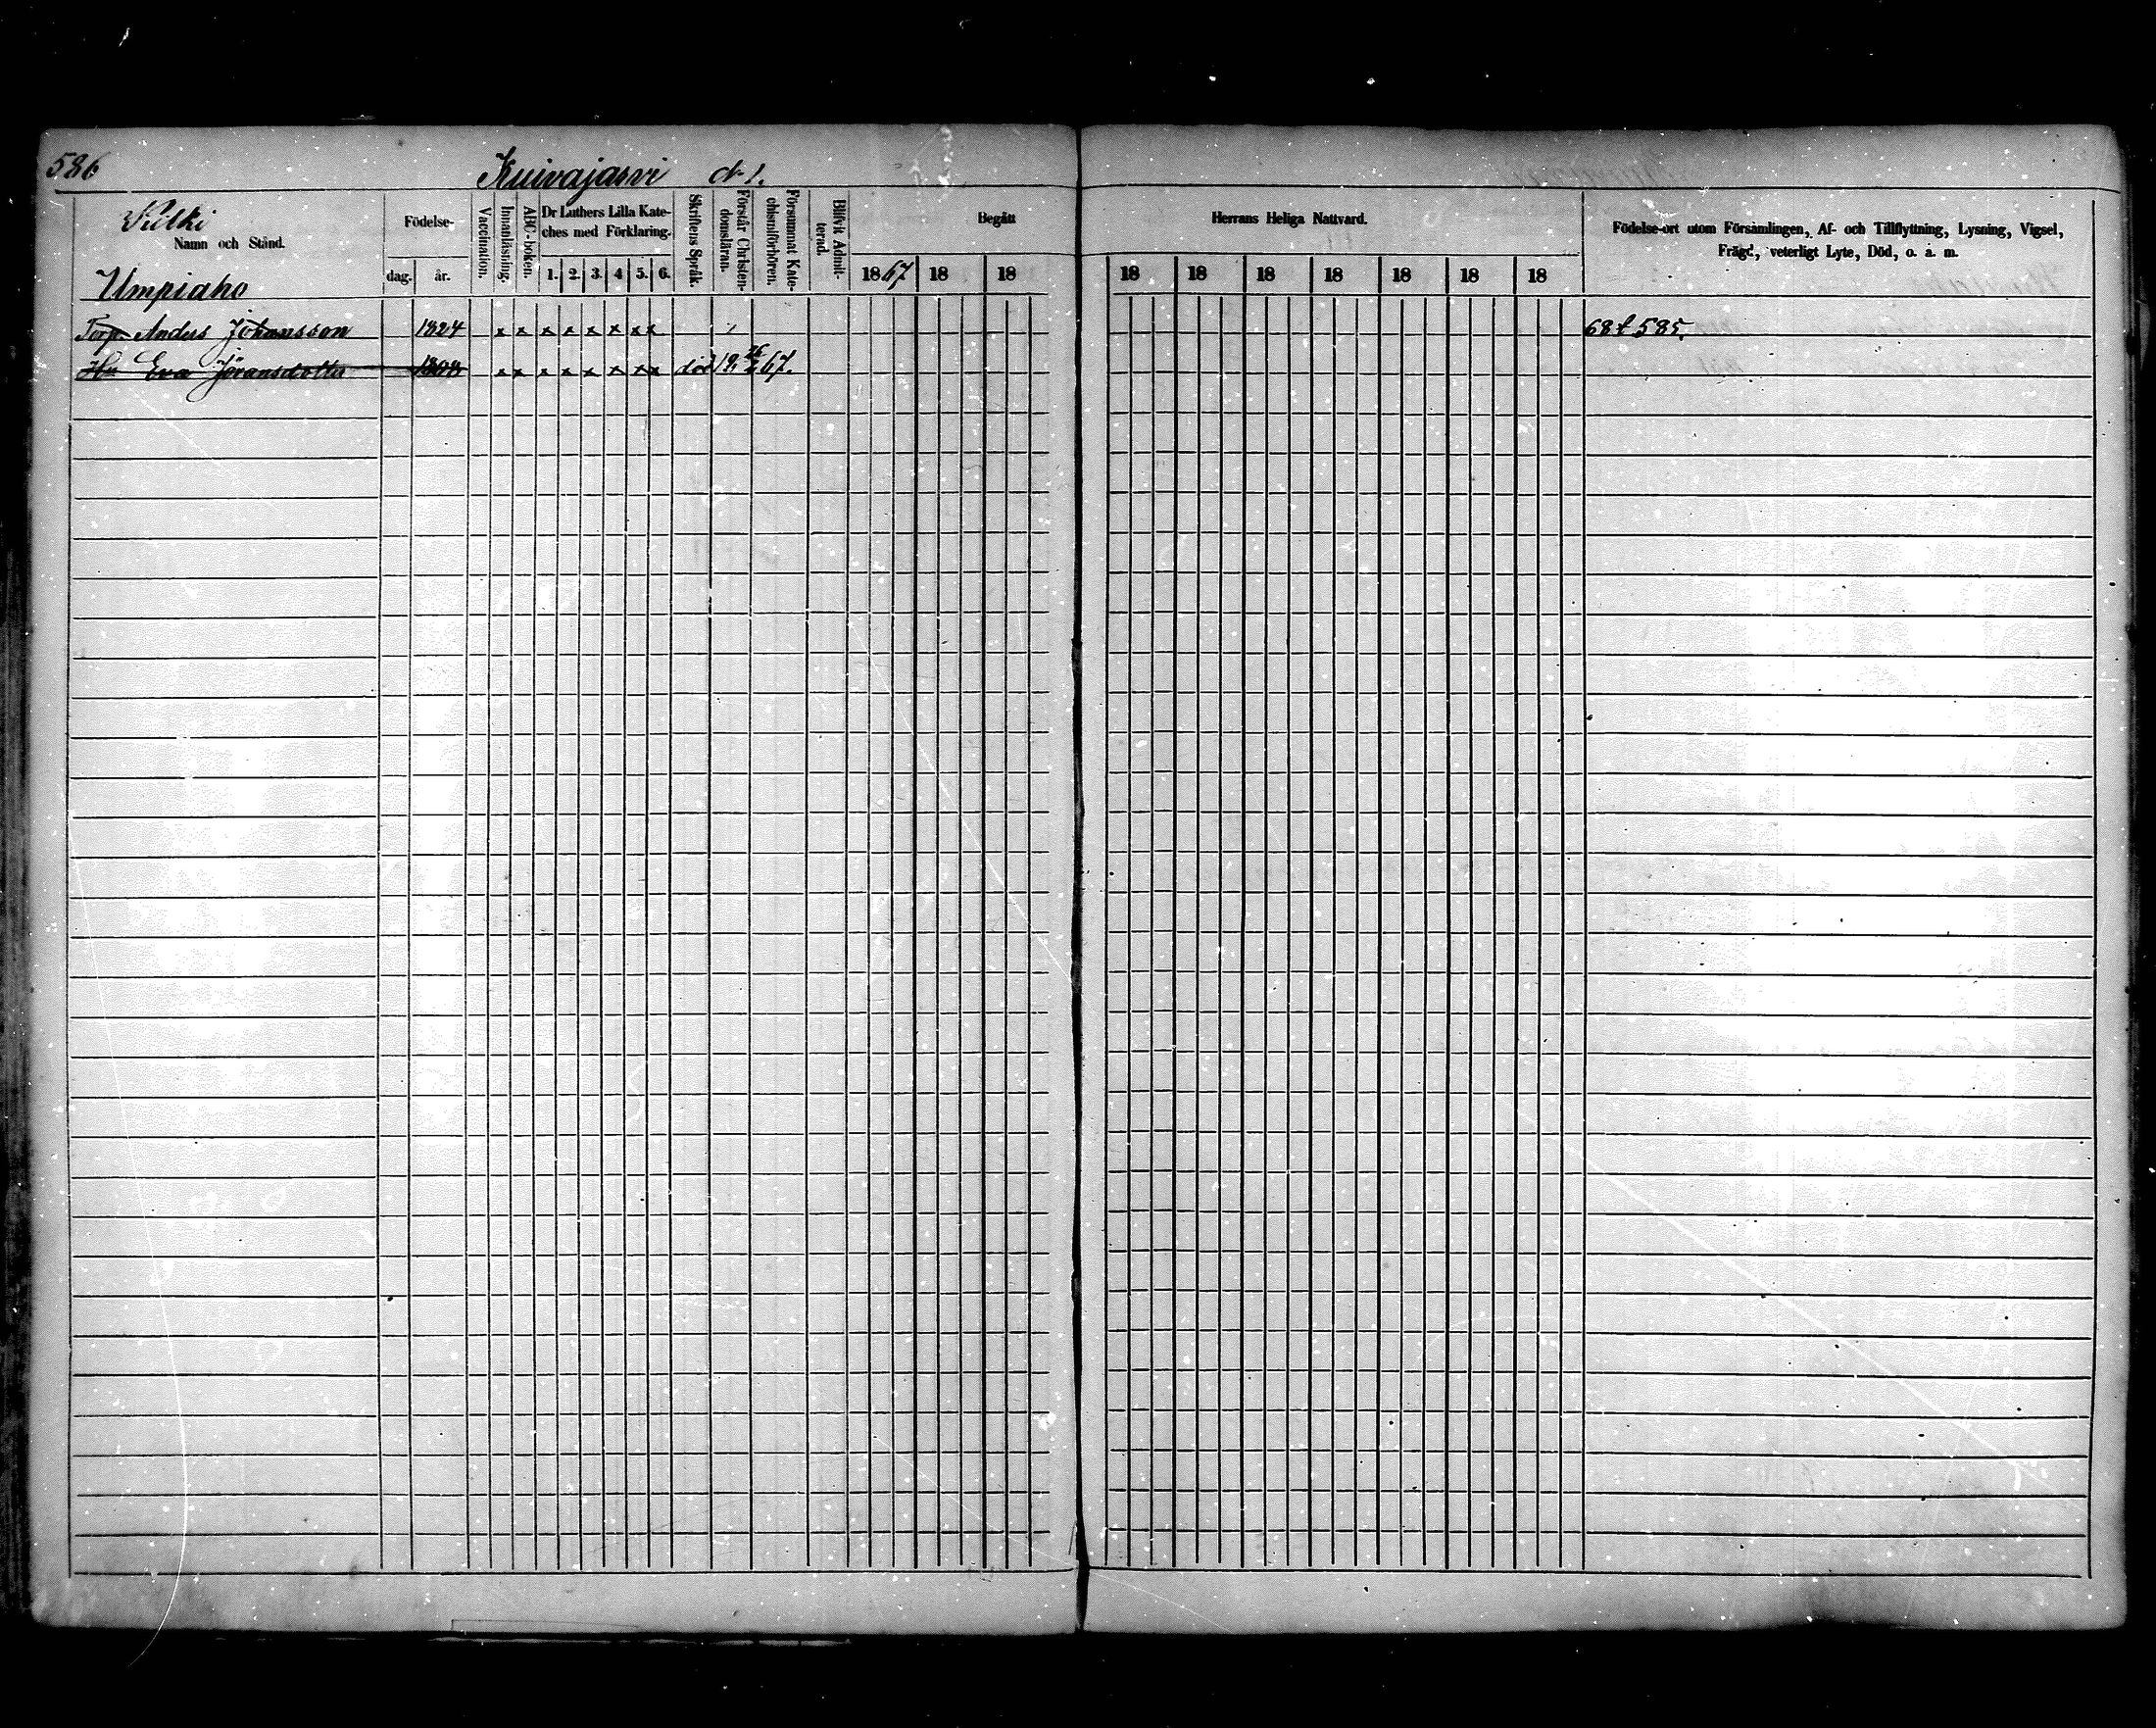 586 Kuivajarvi № 1.
Pulki
Namn och Stånd.
Umpiaho
Födelse-
dag. år.
Vaccination.
Innanläsning.
ABC-boken.
Dr Luthers Lilla Kate-
ches med Förklaring.
1. 2. 3. 4 5. 6.
Skriftens Språk.
Förstår Christen-
domsläran.
Försummat Kate-
chismiförhören.
Blifvit Admit-
terad.
Begått Herrans Heliga Nattvard.
1867 18 18 18 18 18 18 18 18 18
Födelse-ort utom Församlingen, Af- och Tillflyttning, Lysning, Vigsel,
Frägd, veterligt Lyte, Död, o. a. m.
Torp. Anders Johansson 1824 x x x x x x x x 68 f 585.
Hu Eva Jöransdotter 1808 x x x x x x x x död 67.